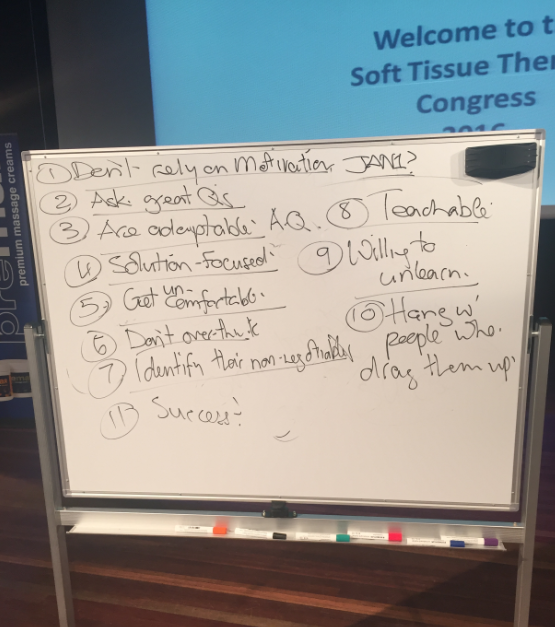 Welcome to t
Soft Tissue Ther
Congress
2016
premium massage creams
① Don't rely on Motivation JAN1?
② Ask great Qs
③ Are adaptable: A.Q.
④ Solution-Focused:
⑤ Get un-comfortable.
⑥ Don't overthink
⑦ Identify their non-negotiables
⑪ Success?
⑧ Teachable
⑨ Willing to
unlearn.
⑩ Hang w'
people who.
drag them up